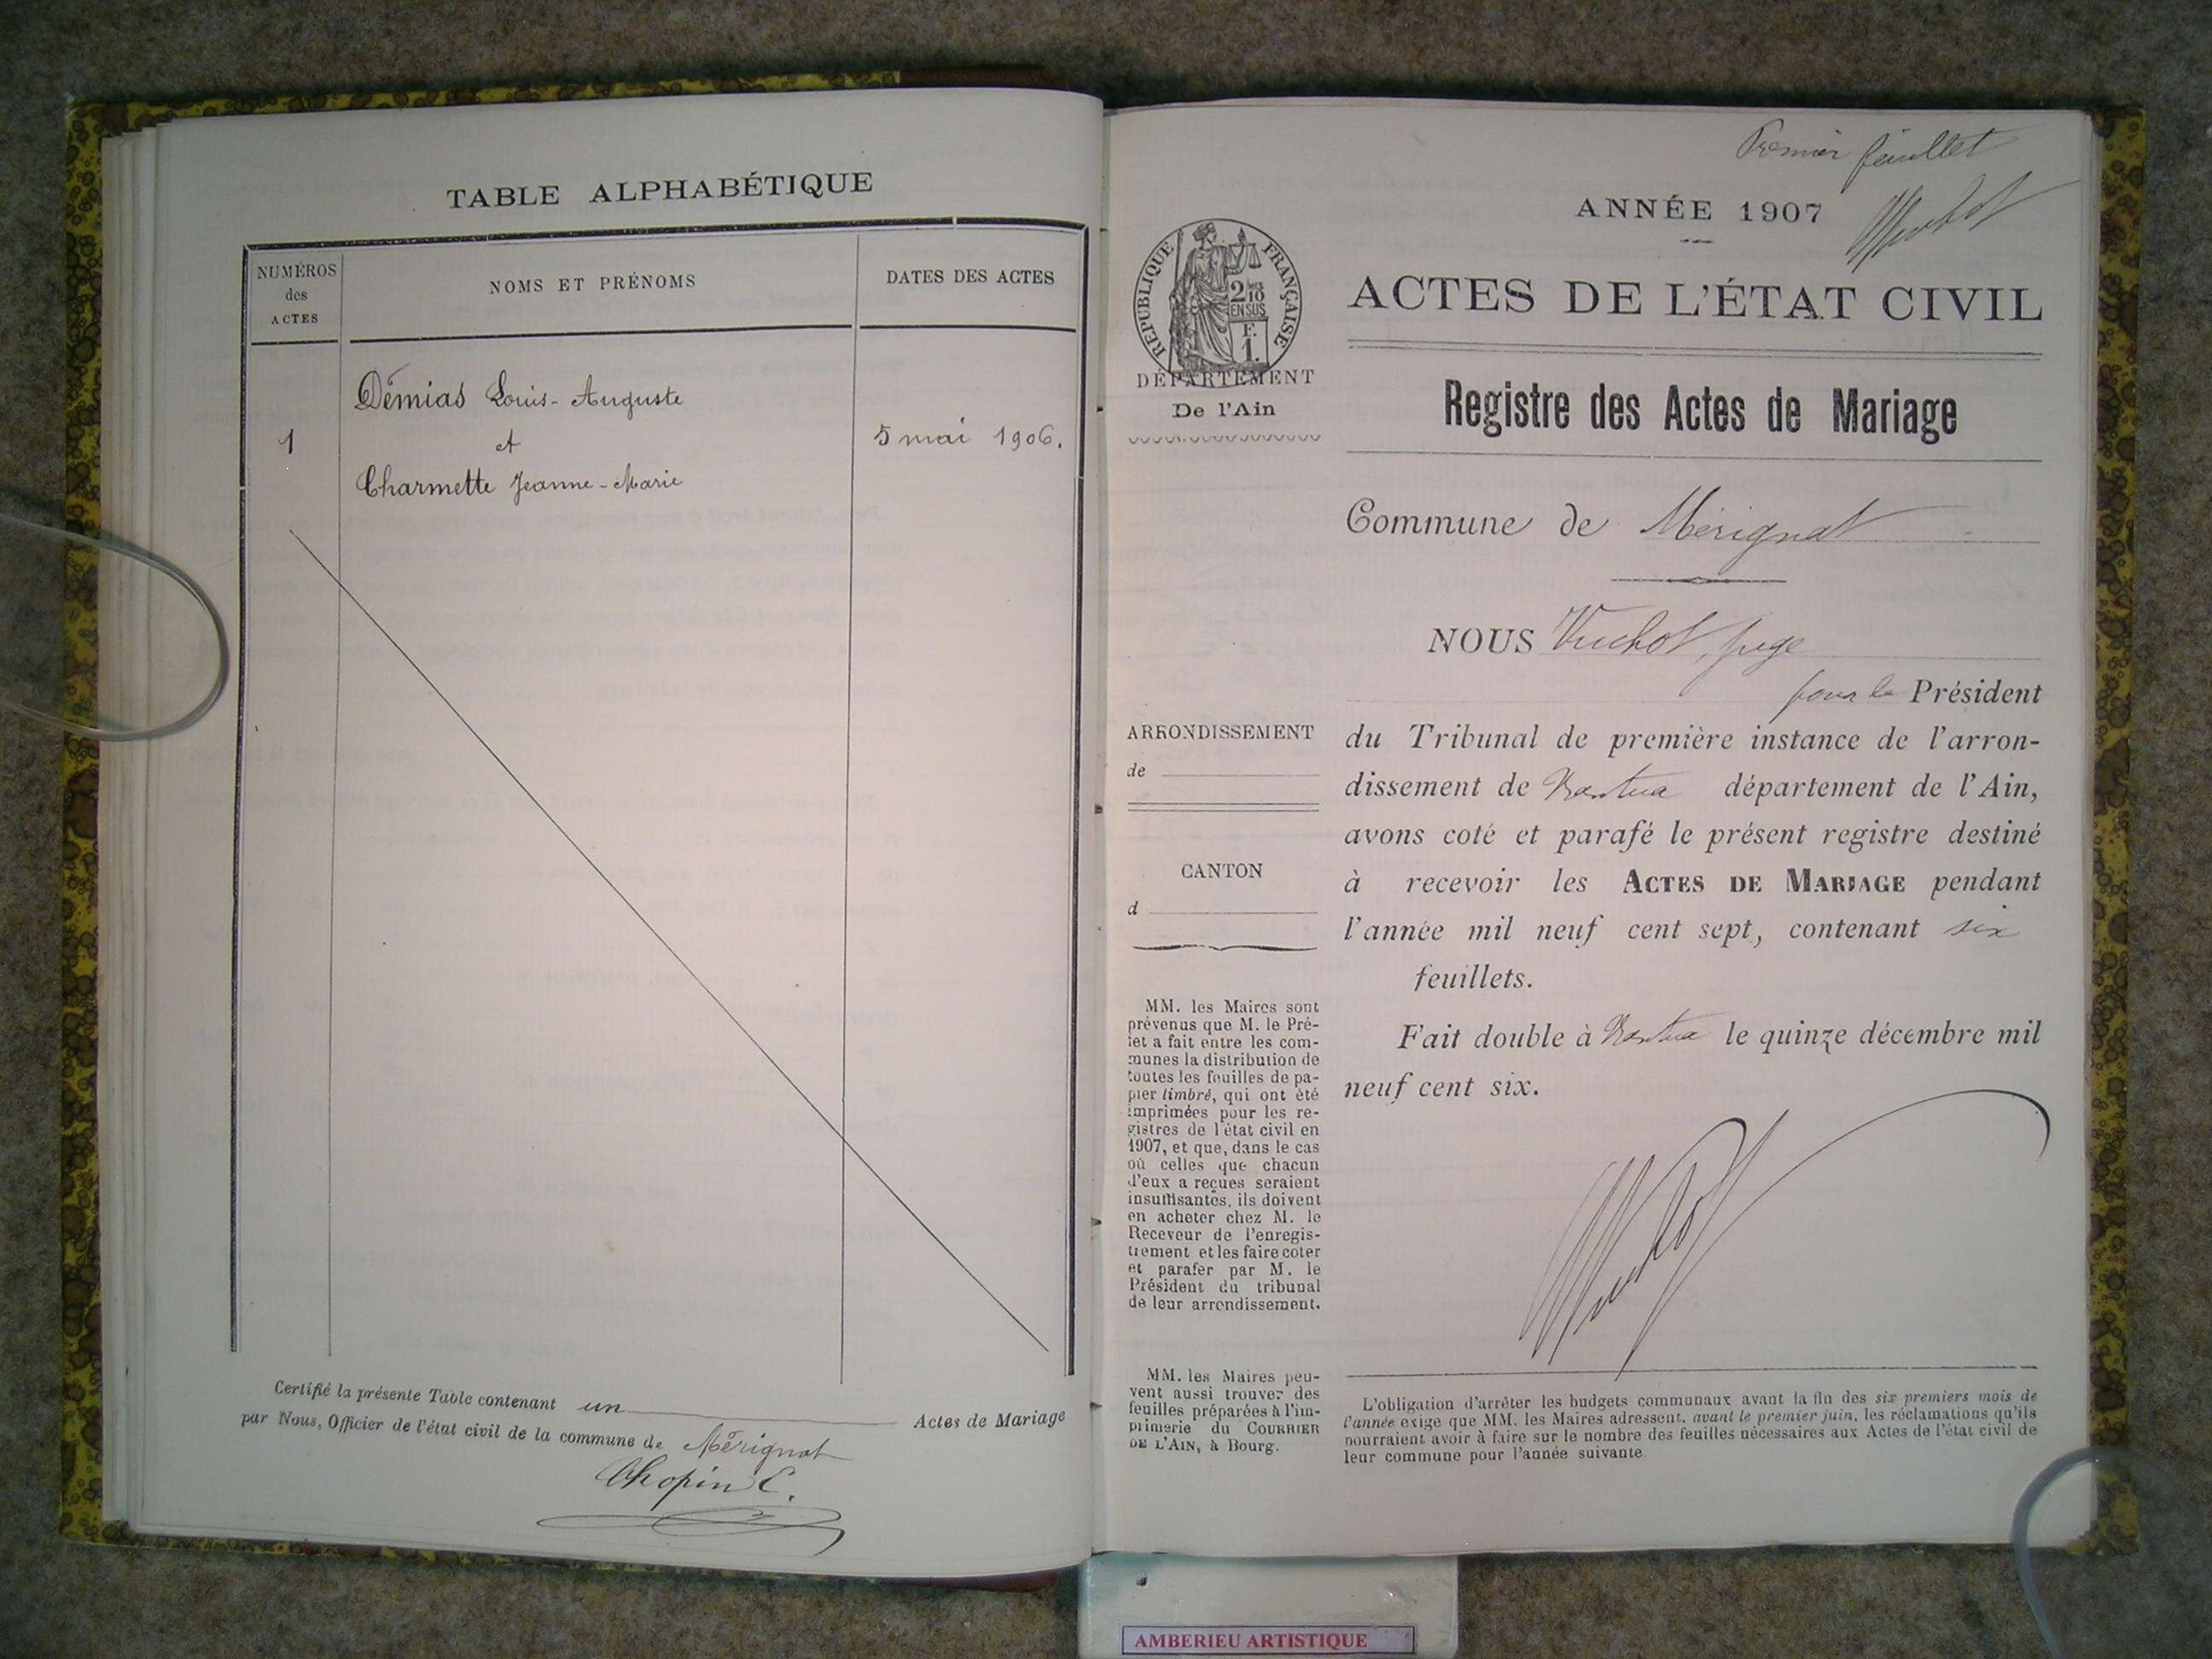 TABLE ALPHABÉTIQUE
NUMÉROS
des
ACTES
NOMS ET PRÉNOMS
DATES DES ACTES
Démias Louis-Auguste
1
et
5 mai 1906.
Charmette Jeanne-Marie
Certifié la présente Table contenant un Actes de Mariage
par Nous, Officier de l'état civil de la commune de Mérignat
Chopin C.
Premier feuillet
ANNÉE 1907
RÉPUBLIQUE FRANÇAISE
2/10
EN SUS
F.
1.
ACTES DE L'ÉTAT CIVIL
DÉPARTEMENT
De l'Ain
Registre des Actes de Mariage
Commune de Mérignat
NOUS Vuchot, juge
pour le Président
du Tribunal de première instance de l'arron-
dissement de Nantua département de l'Ain,
avons coté et parafé le présent registre destiné
à recevoir les ACTES DE MARIAGE pendant
l'année mil neuf cent sept, contenant six
feuillets.
Fait double à Nantua le quinze décembre mil
neuf cent six.
ARRONDISSEMENT
de
CANTON
d
MM. les Maires sont
prévenus que M. le Pré-
fet a fait entre les com-
munes la distribution de
toutes les feuilles de pa-
pier timbré, qui ont été
imprimées pour les re-
gistres de l'état civil en
1907, et que, dans le cas
où celles que chacun
d'eux a reçues seraient
insuffisantes, ils doivent
en acheter chez M. le
Receveur de l'enregis-
trement et les faire coter
et parafer par M. le
Président du tribunal
de leur arrondissement.
MM. les Maires peu-
vent aussi trouver des
feuilles préparées à l'im-
primerie du COURRIER
DE L'AIN, à Bourg.
L'obligation d'arrêter les budgets communaux avant la fin des six premiers mois de
l'année exige que MM. les Maires adressent, avant le premier juin, les réclamations qu'ils
pourraient avoir à faire sur le nombre des feuilles nécessaires aux Actes de l'état civil de
leur commune pour l'année suivante.
AMBERIEU ARTISTIQUE